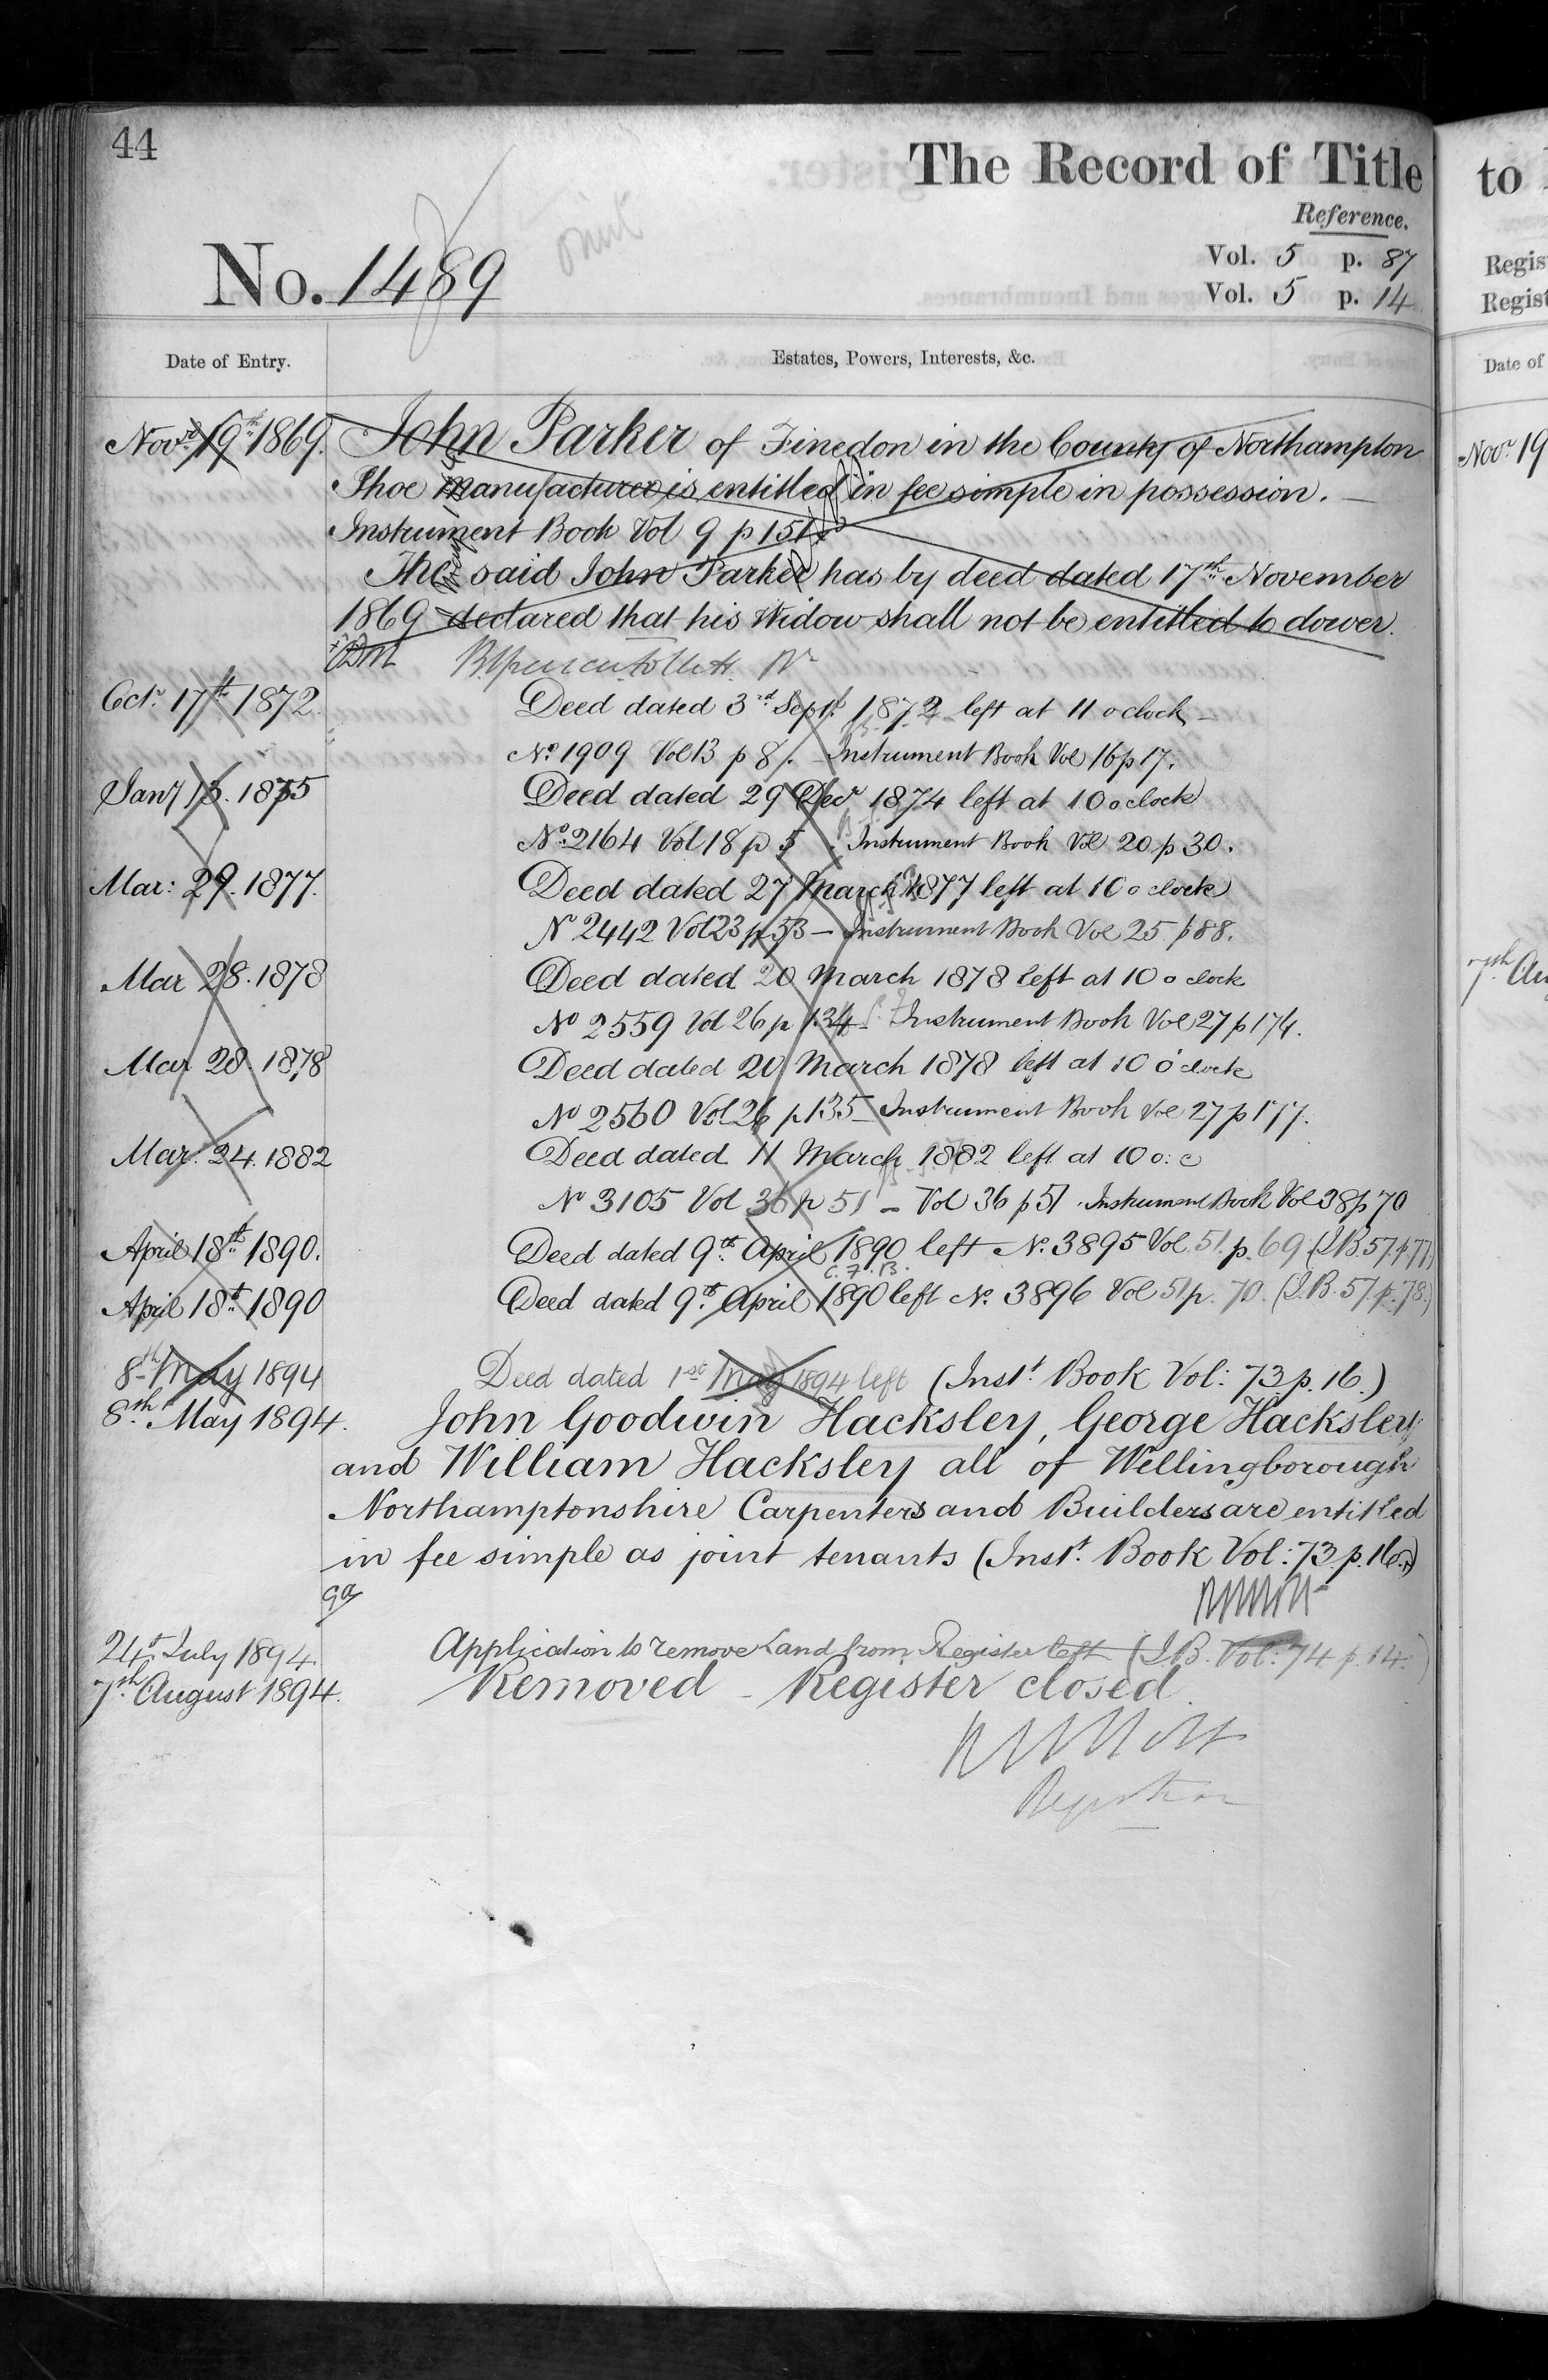 44
The Record of Title
Reference.
No. 1489
Vol. 5 p. 87
Vol. 5 p. 14
Date of Entry.
Estates, Powers, Interests, &c.
Novr. 19th 1869. John Parker of Finedon in the County of Northampton
Shoe manufacturer is entitled in fee simple in possession.
Instrument Book Vol 9 p 151
The said John Parker has by deed dated 17th November
1869 declared that his Widow shall not be entitled to dower.
Octr. 17th 1872 Deed dated 3rd Sept. 1872 left at 11 o clock
No. 1909 Vol 13 p 8 . Instrument Book Vol 16 p 17.
Jany 15. 1875 Deed dated 29 Decr 1874 left at 10 o clock
No. 2164 Vol 18 p 5 . Instrument Book Vol 20 p 30.
Mar: 29. 1877. Deed dated 27 March 1877 left at 10 o clock
No 2442 Vol 23 p 53 — Instrument Book Vol 25 p 88.
Mar 28. 1878 Deed dated 20 March 1878 left at 10 o clock
No 2559 Vol 26 p 134 — Instrument Book Vol 27 p 174.
Mar 28. 1878 Deed dated 20 March 1878 left at 10 o'clock
No 2560 Vol 26 p 135 — Instrument Book Vol 27 p 177.
Mar. 24. 1882 Deed dated 11 March 1882 left at 10 o: c
No 3105 Vol 36 p 51 — Vol 36 p 51 . Instrument Book Vol 38 p 70
April 18th 1890. Deed dated 9th April 1890 left No. 3895 Vol. 51. p. 69 (I.B. 57. p. 77)
C. F. B.
April 18th 1890 Deed dated 9th April 1890 left No. 3896 Vol 51 p. 70. (I.B. 57. p. 78.)
8th May 1894 Deed dated 1st May 1894 left (Inst. Book Vol: 73 p. 16.)
8th May 1894. John Goodwin Hacksley, George Hacksley
and William Hacksley all of Wellingborough
Northamptonshire Carpenters and Builders are entitled
in fee simple as joint tenants (Inst. Book Vol: 73. p. 16.)
24th July 1894. Application to remove Land from Register left (I.B. Vol: 74 p. 14.)
7th August 1894. Removed — Register closed.
Registrar
to
Regis
Regist
Date of
Novr 19
7th Au